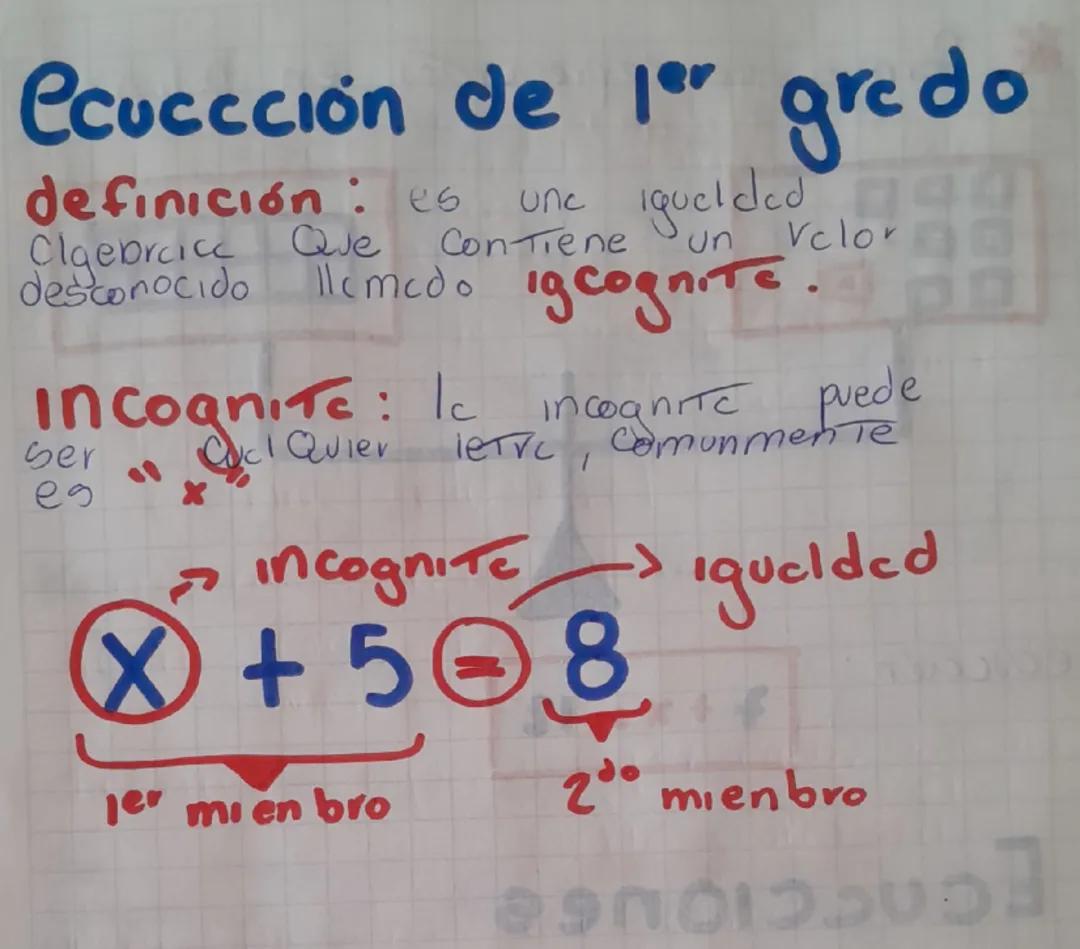 Ecuacción de 1er grado
definición: es una igualdad
Algebraica Que Contiene un valor
desconocido llamado igcognita.
Incognita: la incognita puede
ser CualQuier letra, Comunmente
es "x"
incognita igualdad
x + 5 = 8
1er mienbro 2do mienbro